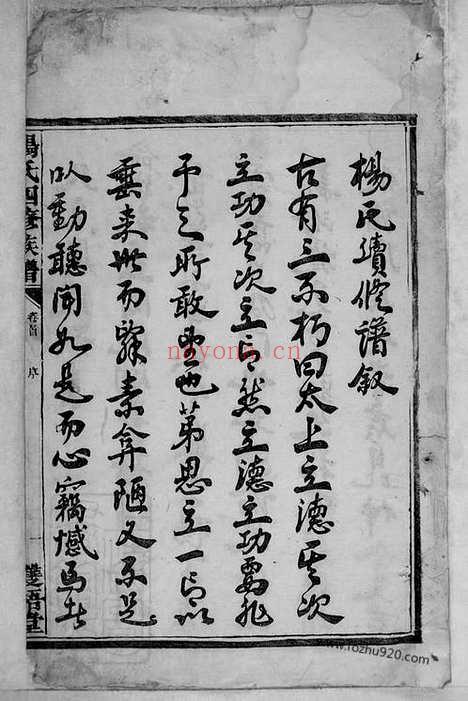 楊氏續修譜叙
古有三不朽曰太上立德其次
立功其次立言然立德立功要非
予之所敢望也第思立一言以
垂来世而辭素弇陋又不足
以動聽聞如是而心竊憾焉
楊氏四修族譜
卷首
序
一
雙語堂
nayona.cn
www.fozhu920.com